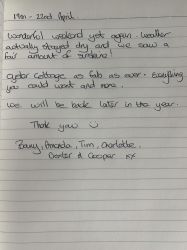 19th - 22nd April
Wonderful weekend yet again. Weather
actually stayed dry and we saw a
fair amount of sunshine.
Cyder Cottage as fab as ever. Everything
you could want and more.
We will be back later in the year.
Thank you
Barry, Amanda, Tim, Charlotte,
Dexter & Cooper xx